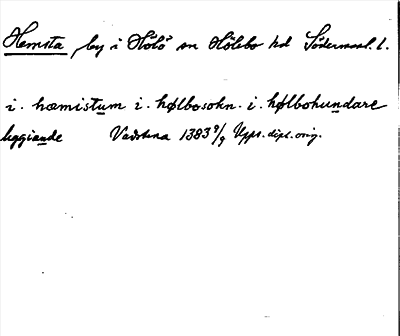 Hemsta by i Hölö sn Hölebo hd Södermanl. l.
i. hæmistum i. hølbosokn. i. hølbohundare
liggiande Vadstena 1383 9/9 Upps. dipl. orig.